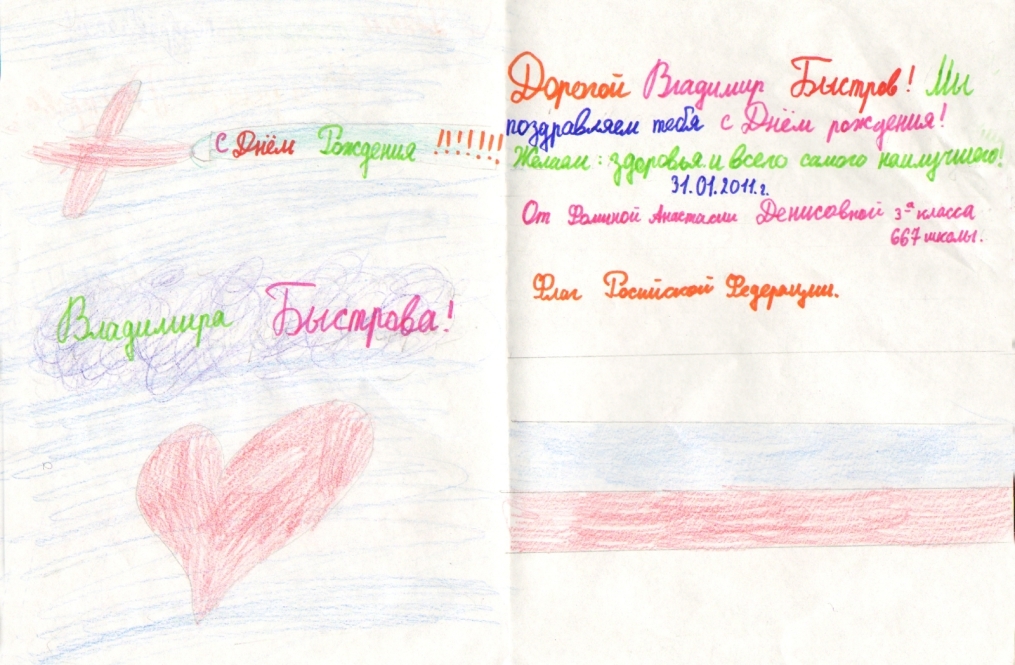 С Днём Рождения !!!!!!!
Владимира Быстрова!
Дорогой Владимир Быстров! Мы
поздравляем тебя с Днём рождения!
Желаем: здоровья и всего самого наилучшего!
31.01.2011.г.
От Фоминой Анастасии Денисовной 3ª класса
667 школы.
Флаг Российской Федерации.